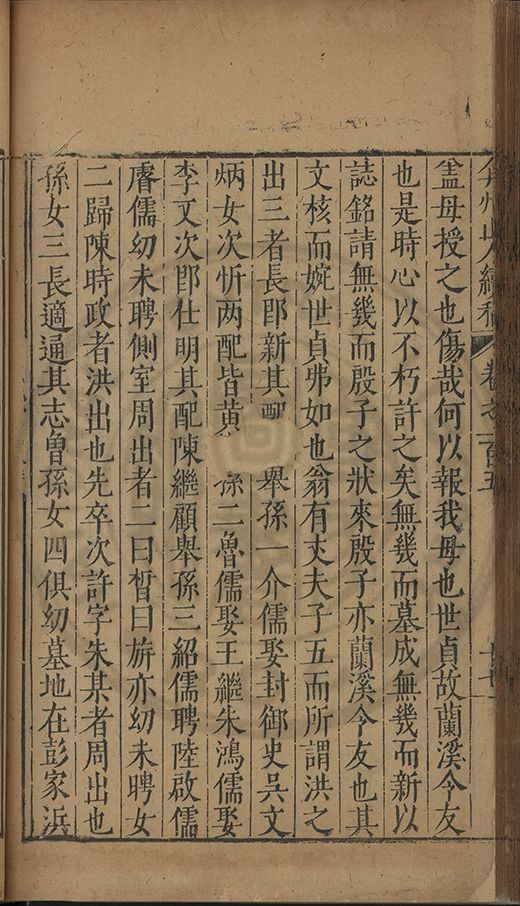 弇州山人續稿 卷之一百五 十七
葢母授之也傷哉何以報我母也世貞故蘭溪令友
也是時心以不朽許之矣無幾而墓成無幾而新以
誌銘請無幾而殷子之狀來殷子亦蘭溪令友也其
文核而婉世貞弗如也翁有丈夫子五而所謂洪之
出三者長郎新其配 舉孫一介儒娶封御史吳文
炳女次忻两配皆黄 孫二魯儒娶王繼朱鴻儒娶
李文次郎仕明其配陳繼顧舉孫三紹儒聘陸啟儒
睿儒幼未聘側室周出者二曰晢曰旂亦幼未聘女
二歸陳時政者洪出也先卒次許字朱某者周出也
孫女三長適通其志曾孫女四俱幼墓地在彭家浜